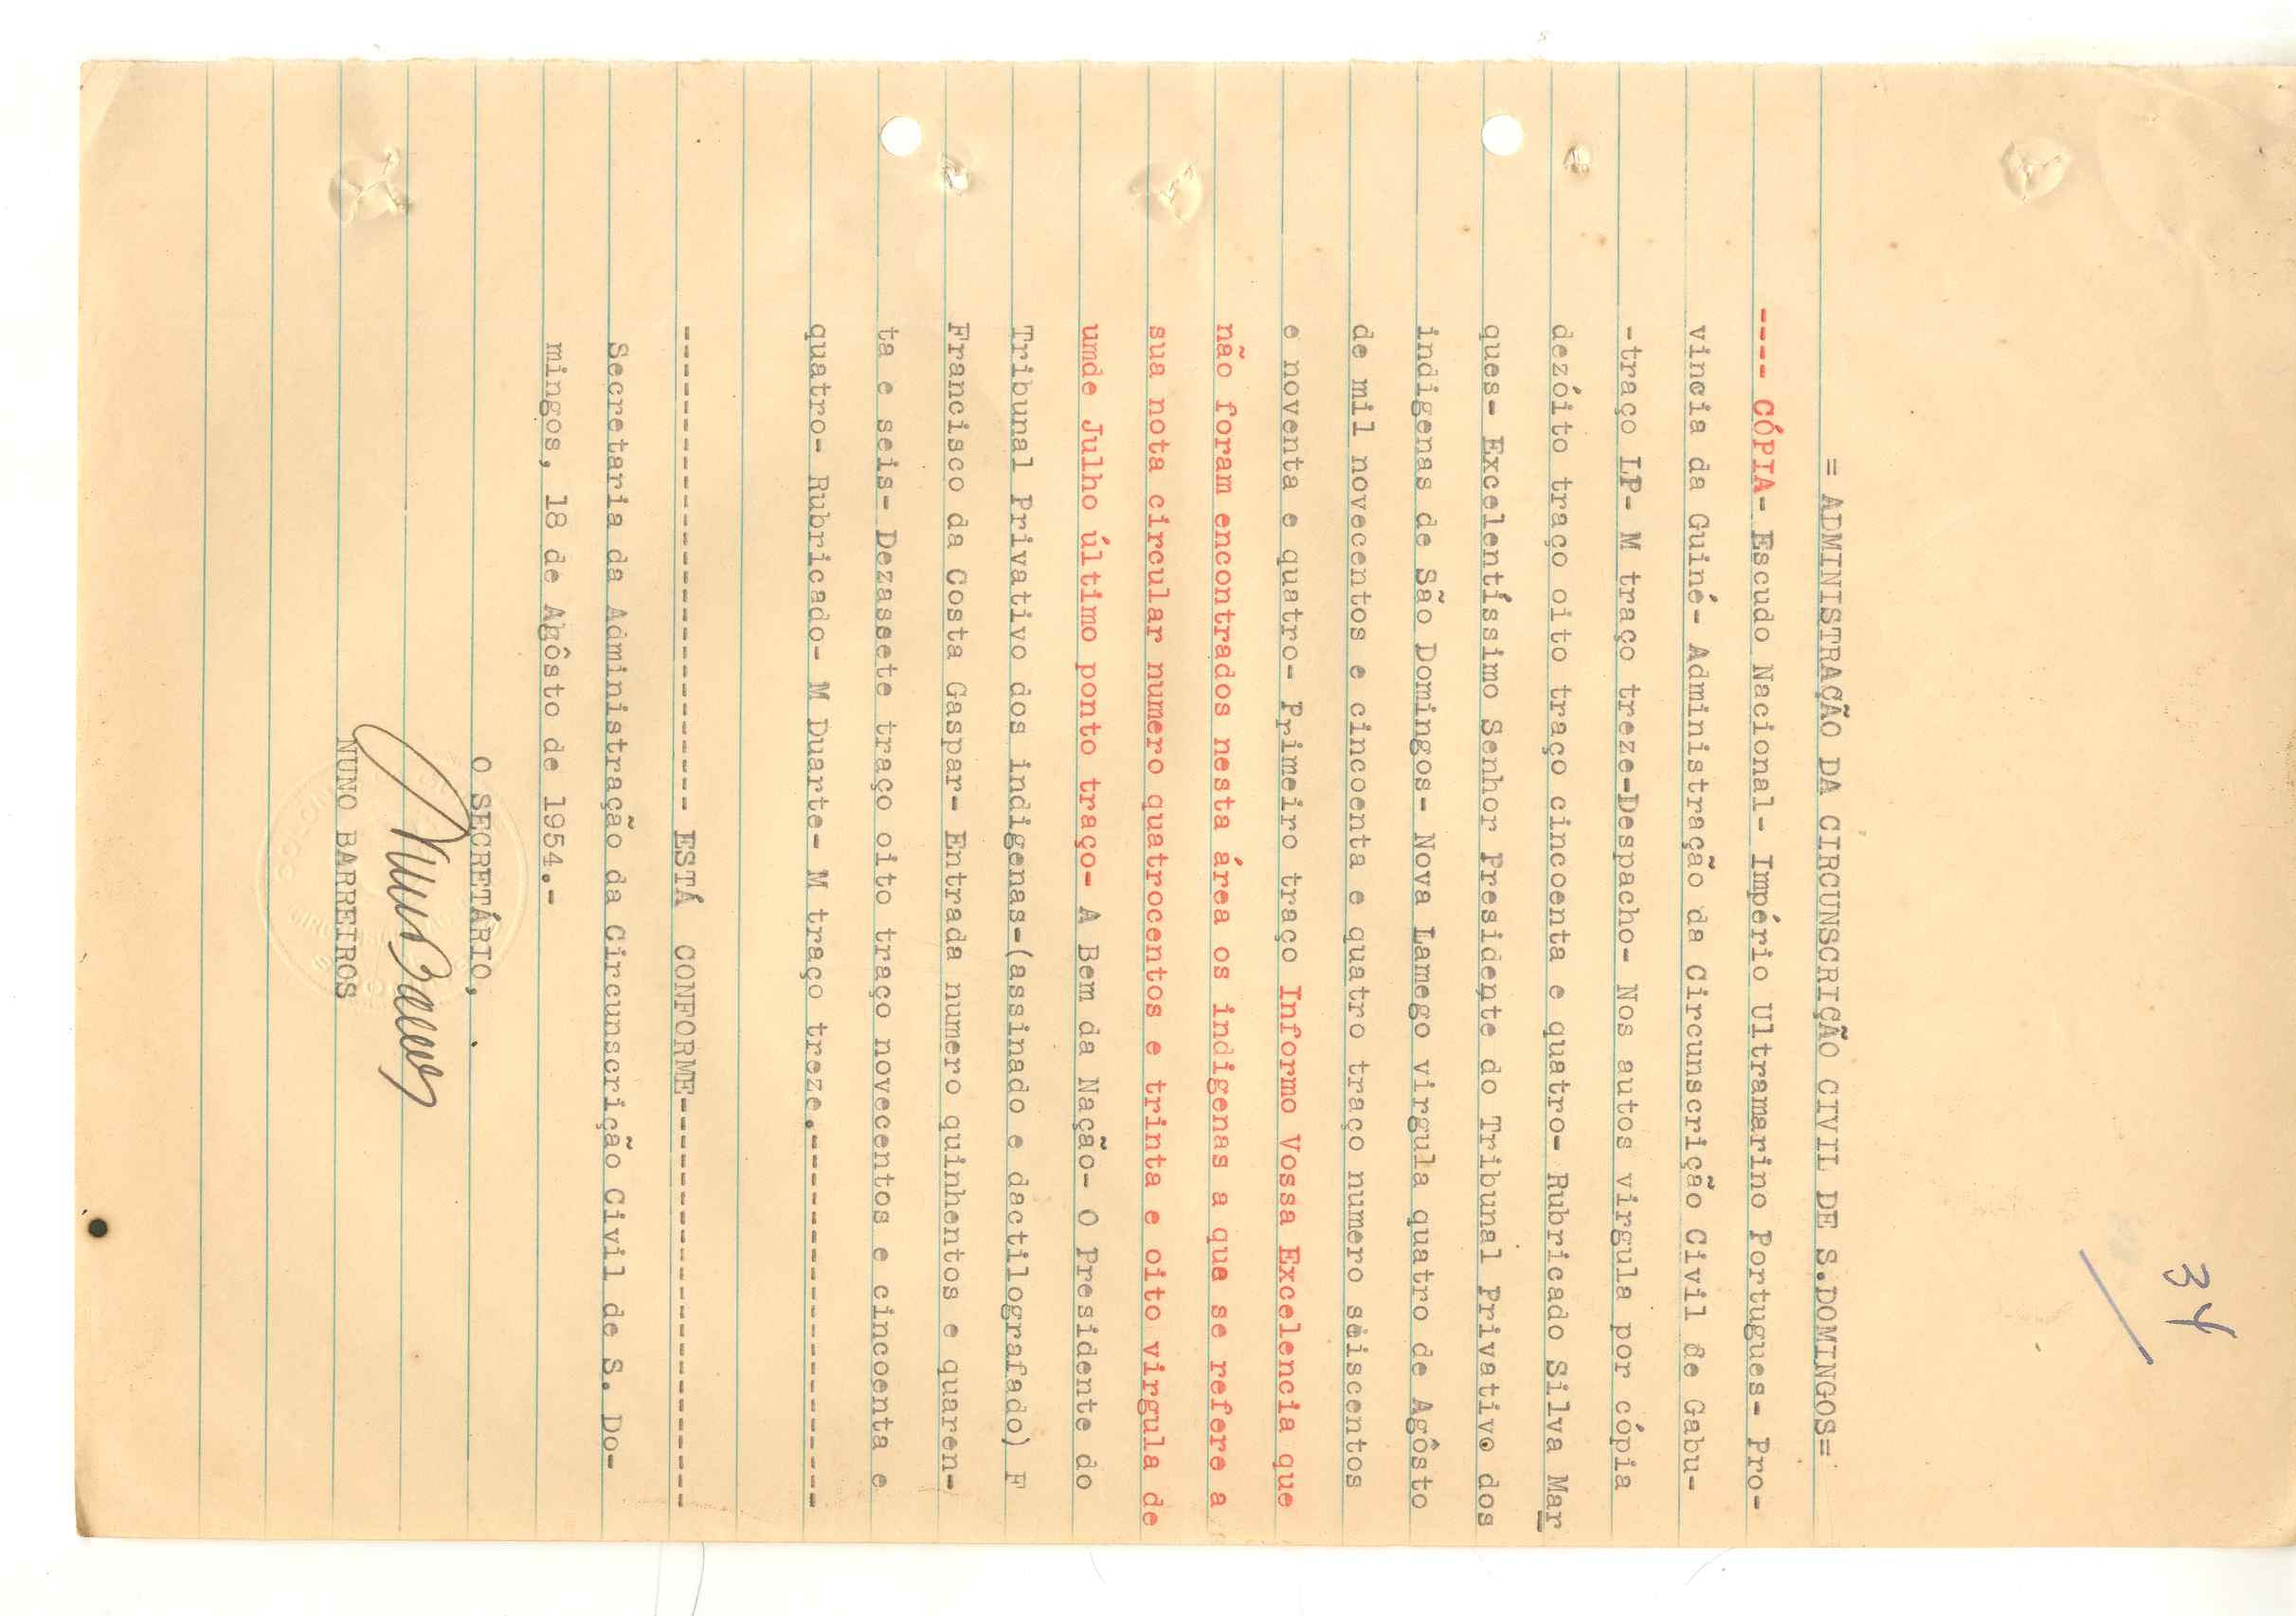 34
= ADMINISTRAÇÃO DA CIRCUNSCRIÇÃO CIVIL DE S.DOMINGOS=
---- CÓPIA- Escudo Nacional- Império Ultramarino Portugues- Pro-
vincia da Guiné- Administração da Circunscrição Civil de Gabu-
-traço LP- M traço treze-Despacho- Nos autos virgula por cópia
dezóito traço oito traço cincoenta e quatro- Rubricado Silva Mar
ques- Excelentíssimo Senhor Presidente do Tribunal Privativo dos
indigenas de São Domingos- Nova Lamego virgula quatro de Agôsto
de mil novecentos e cincoenta e quatro traço numero seiscentos
e noventa e quatro- Primeiro traço Informo Vossa Excelencia que
não foram encontrados nesta área os indigenas a que se refere a
sua nota circular numero quatrocentos e trinta e oito virgula de
umde Julho último ponto traço- A Bem da Nação- O Presidente do
Tribunal Privativo dos indigenas-(assinado e dactilografado) F
Francisco da Costa Gaspar- Entrada numero quinhentos e quaren-
ta e seis- Dezassete traço oito traço novecentos e cincoenta e
quatro- Rubricado- M Duarte- M traço treze.------------------------
------------------------------- ESTÁ CONFORME---------------------------
Secretaria da Administração da Circunscrição Civil de S. Do-
mingos, 18 de Agôsto de 1954.-
O SECRETÁRIO,
Nuno Barreiros
NUNO BARREIROS